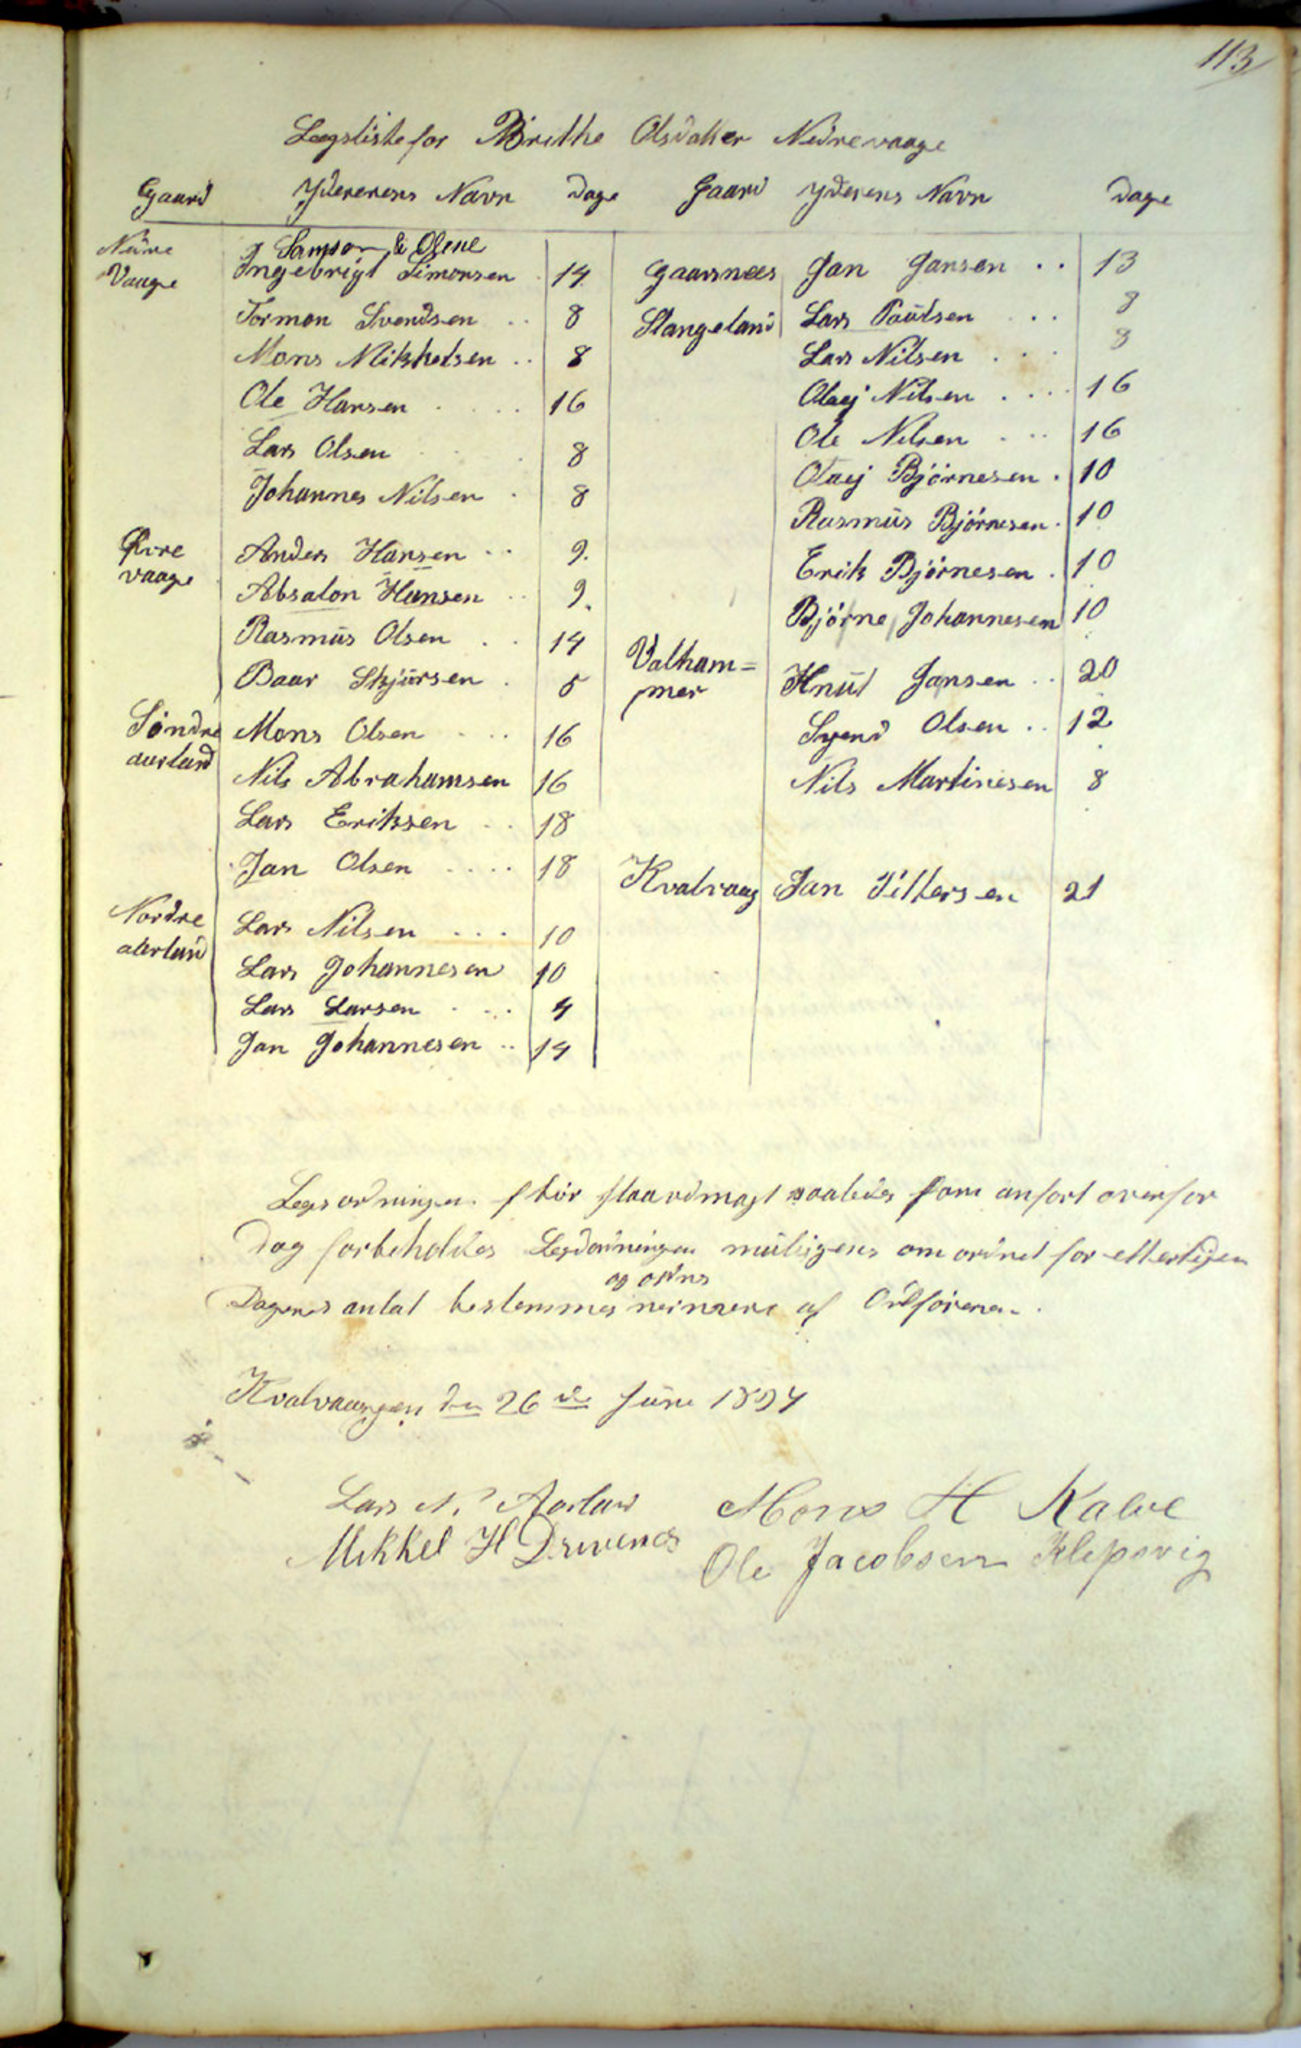 113
Lægsliste for Brithe Olsdatter Nedrevaage
Gaard Yderens Navn Dage Gaard Yderens Navn Dage
Samson & Olene
Nedre Vaage Ingebrigt Simonsen 14
Tormon Svendsen .. 8
Mons Mikkelsen .. 8
Ole Hansen .... 16
Lars Olsen ... 8
Johannes Nilsen . 8
Øvre vaage Anders Hansen .. 9.
Absalon Hansen .. 9.
Rasmus Olsen .. 14
Baar Skjursen . 5
Søndre aurland Mons Olsen ... 16
Nils Abrahamsen 16
Lars Eriksen .. 18
Jan Olsen .... 18
Nordre aurland Lars Nilsen ... 10
Lars Johannesen 10
Lars Larsen ... 4
Jan Johannesen .. 14
Gaasnæs Jan Jansen .. 13
Stangeland Lars Paulsen ... 8
Lars Nilsen ... 8
Olaej Nilsen .... 16
Ole Nilsen ... 16
Olaej Bjørnesen . 10
Rasmus Bjørnesen . 10
Erik Bjørnesen . 10
Bjørne Johannesen 10
Valham=
mer Knut Jansen .. 20
Svend Olsen .. 12
Nils Martinesen 8
Kvalvaag Jan Pittersen 21
Legsordningen saaledes som anført ovenfor
Dog forbeholdes Legdordningen muligens omordnet for ettertiden
og ordns
Dagenes antal bestemmes nermere af Ordføreren.
Kvalvaagen den 26de Juni 1894
Lars N. Aarland Mons H Kalve
Mikkel H Drivenes Ole Jacobsen Klepsvig